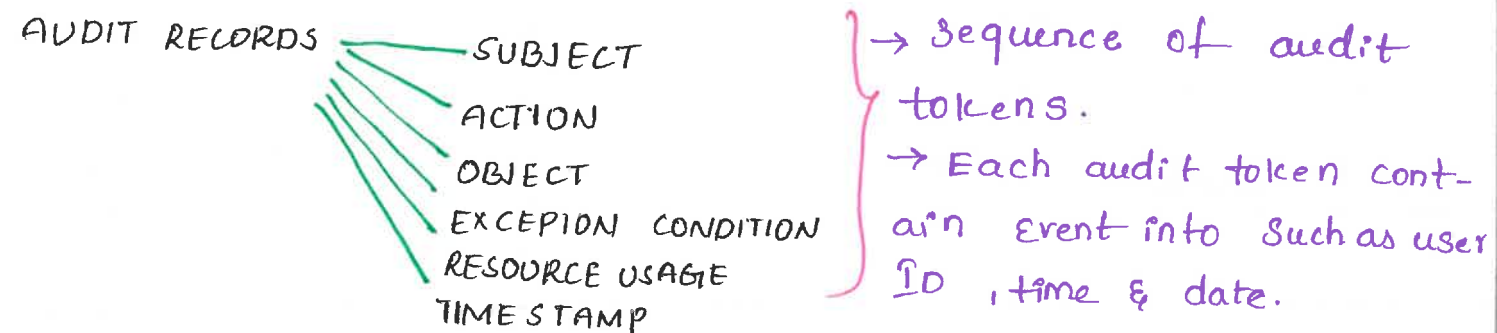 AUDIT RECORDS
SUBJECT
ACTION
OBJECT
EXCEPION CONDITION
RESOURCE USAGE
TIMESTAMP
→ Sequence of audit
tokens.
→ Each audit token cont-
ain Event into Such as user
ID , time & date.